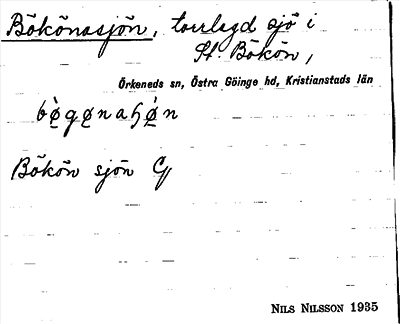 Bökönasjön, torrlagd sjö i
St. Bökön,
Örkeneds sn, Östra Göinge hd, Kristianstads län
Bökön sjön G
Nils Nilsson 1935